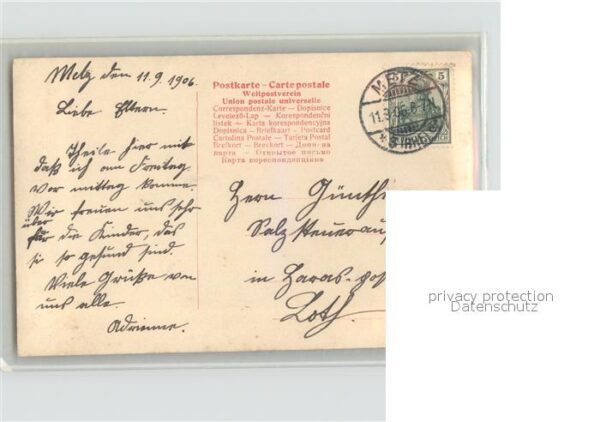 Metz den 11.9.1906.
Liebe Eltern.
Theile hier mit
daß ich am Freitag
vor mittag komme.
Wir freuen uns sehr
über
für die Kinder, das
si so gesund sind.
Viele Grüße von
uns alle.
Adrienne.
Postkarte – Carte postale
Weltpostverein
Union postale universelle
Correspondenz-Karte – Dopisnice
Levelező-Lap – Korespondenční
lístek – Karta korespondencyjna
Dopisnica – Briefkaart – Postcard
Cartolina Postale – Tarjeta Postal
Brefkort – Brevkort – Дописна
карта – Открытое письмо
Карта кореспонденціина
METZ
11.9.06.
5
Herrn Günth
Salzsteuerau
in Haras-po
Loth.
privacy protection
Datenschutz